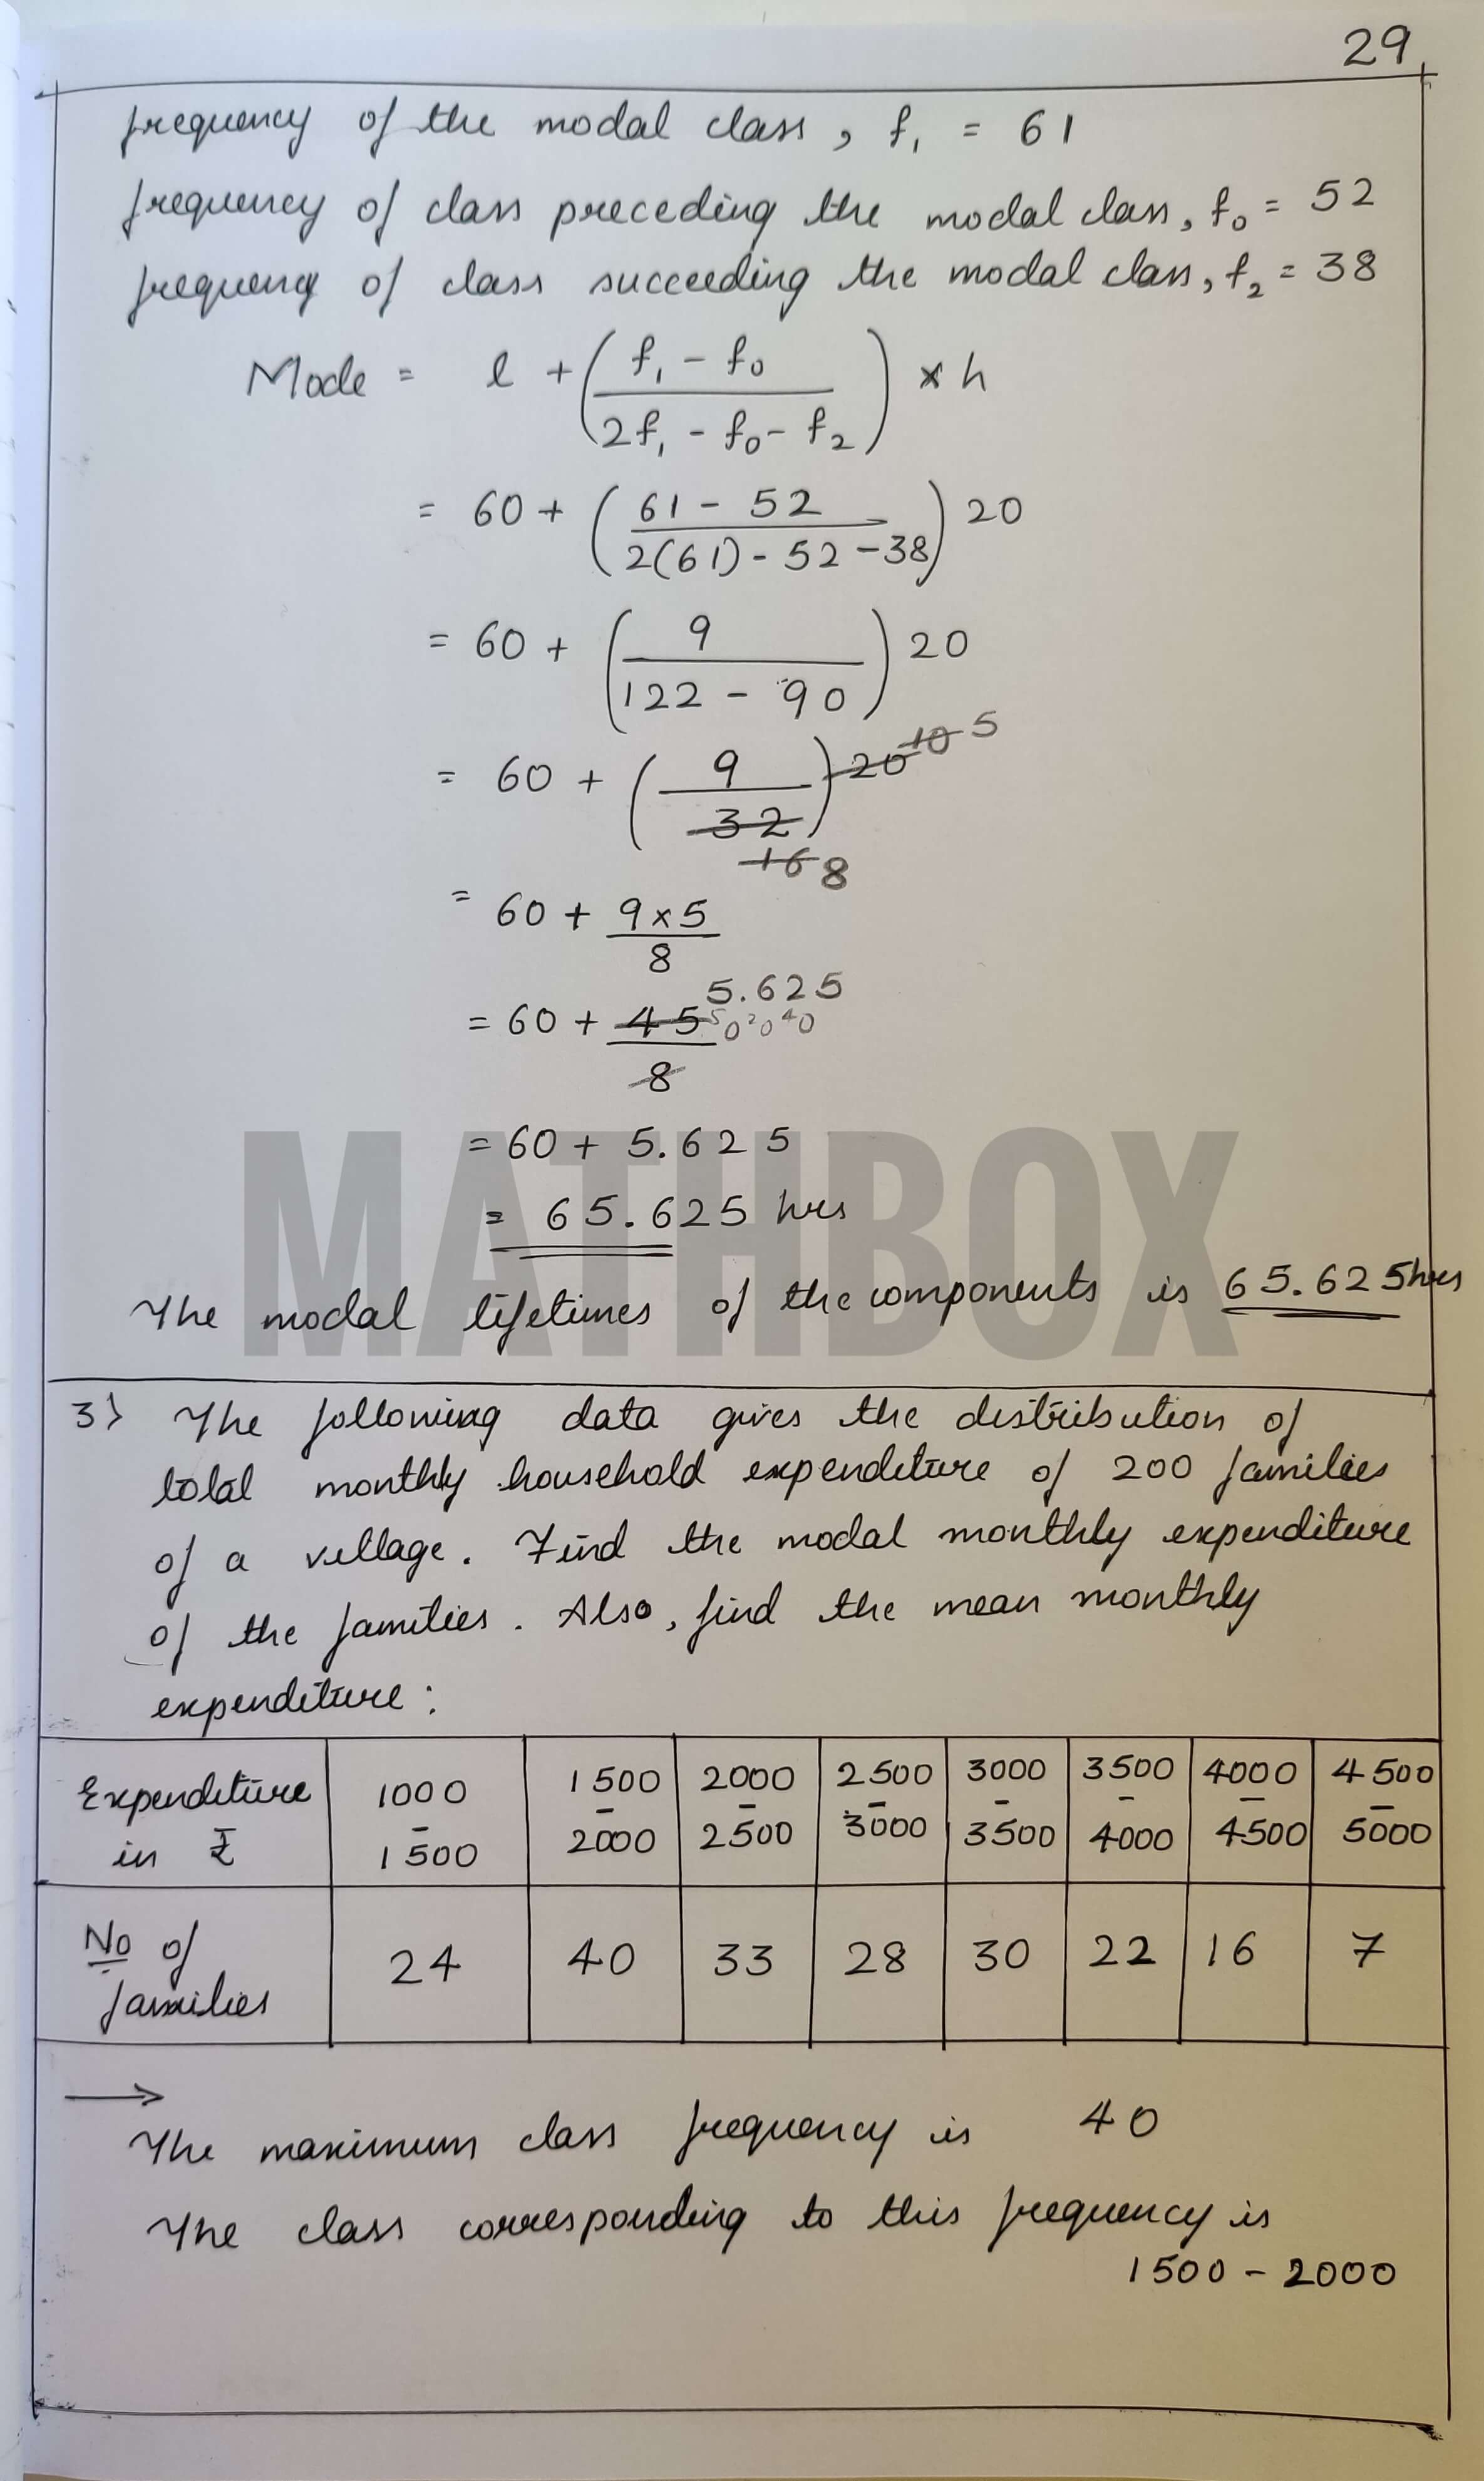 29
frequency of the modal class, f₁ = 61
frequency of class preceding the modal class, f₀ = 52
frequency of class succeeding the modal class, f₂ = 38
Mode = l + ( f₁ - f₀ / 2f₁ - f₀ - f₂ ) × h
= 60 + ( 61 - 52 / 2(61) - 52 - 38 ) 20
= 60 + ( 9 / 122 - 90 ) 20
= 60 + ( 9 / 32 ) 20 10 5
16 8
= 60 + 9×5 / 8
5.625
= 60 + 45 / 8 ⁵0 ²0 ⁴0
= 60 + 5.625
= 65.625 hrs
The modal lifetimes of the components is 65.625hrs
MATHBOX
3) The following data gives the distribution of
total monthly household expenditure of 200 families
of a village. Find the modal monthly expenditure
of the families. Also, find the mean monthly
expenditure:
Expenditure in ₹ 1000 - 1500 1500 - 2000 2000 - 2500 2500 - 3000 3000 - 3500 3500 - 4000 4000 - 4500 4500 - 5000
No of families 24 40 33 28 30 22 16 7
→
The maximum class frequency is 40
The class corresponding to this frequency is
1500 - 2000